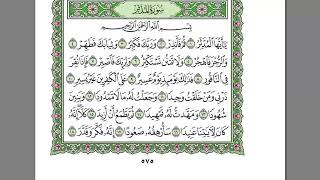 سورة المدثر
بسم الله الرحمن الرحيم
يأيها المدثر ١ قم فأنذر ٢ وربك فكبر ٣ وثيابك فطهر ٤
والرجز فاهجر ٥ ولا تمنن تستكثر ٦ ولربك فاصبر ٧ فإذا نقر
في الناقور ٨ فذلك يومئذ يوم عسير ٩ على الكفرين غير يسير ١٠
ذرني ومن خلقت وحيدا ١١ وجعلت له مالا ممدودا ١٢ وبنين
شهودا ١٣ ومهدت له تمهيدا ١٤ ثم يطمع أن أزيد ١٥ كلا إنه
كان لأيتنا عنيدا ١٦ سأرهقه صعودا ١٧ إنه فكر وقدر ١٨
٥٧٥